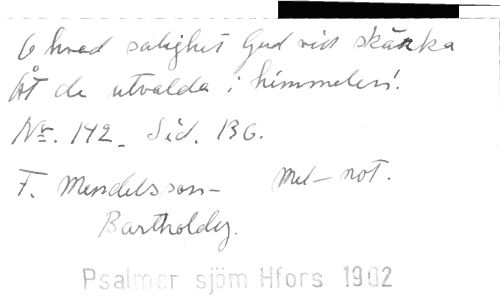 O hvad salighet Gud vill skänka
Åt de utvalda i himmelen!
Nr. 142. Sid. 136.
F. Mendelsson- Mel-not.
Bartholdy.
Psalmer sjöm Hfors 1902